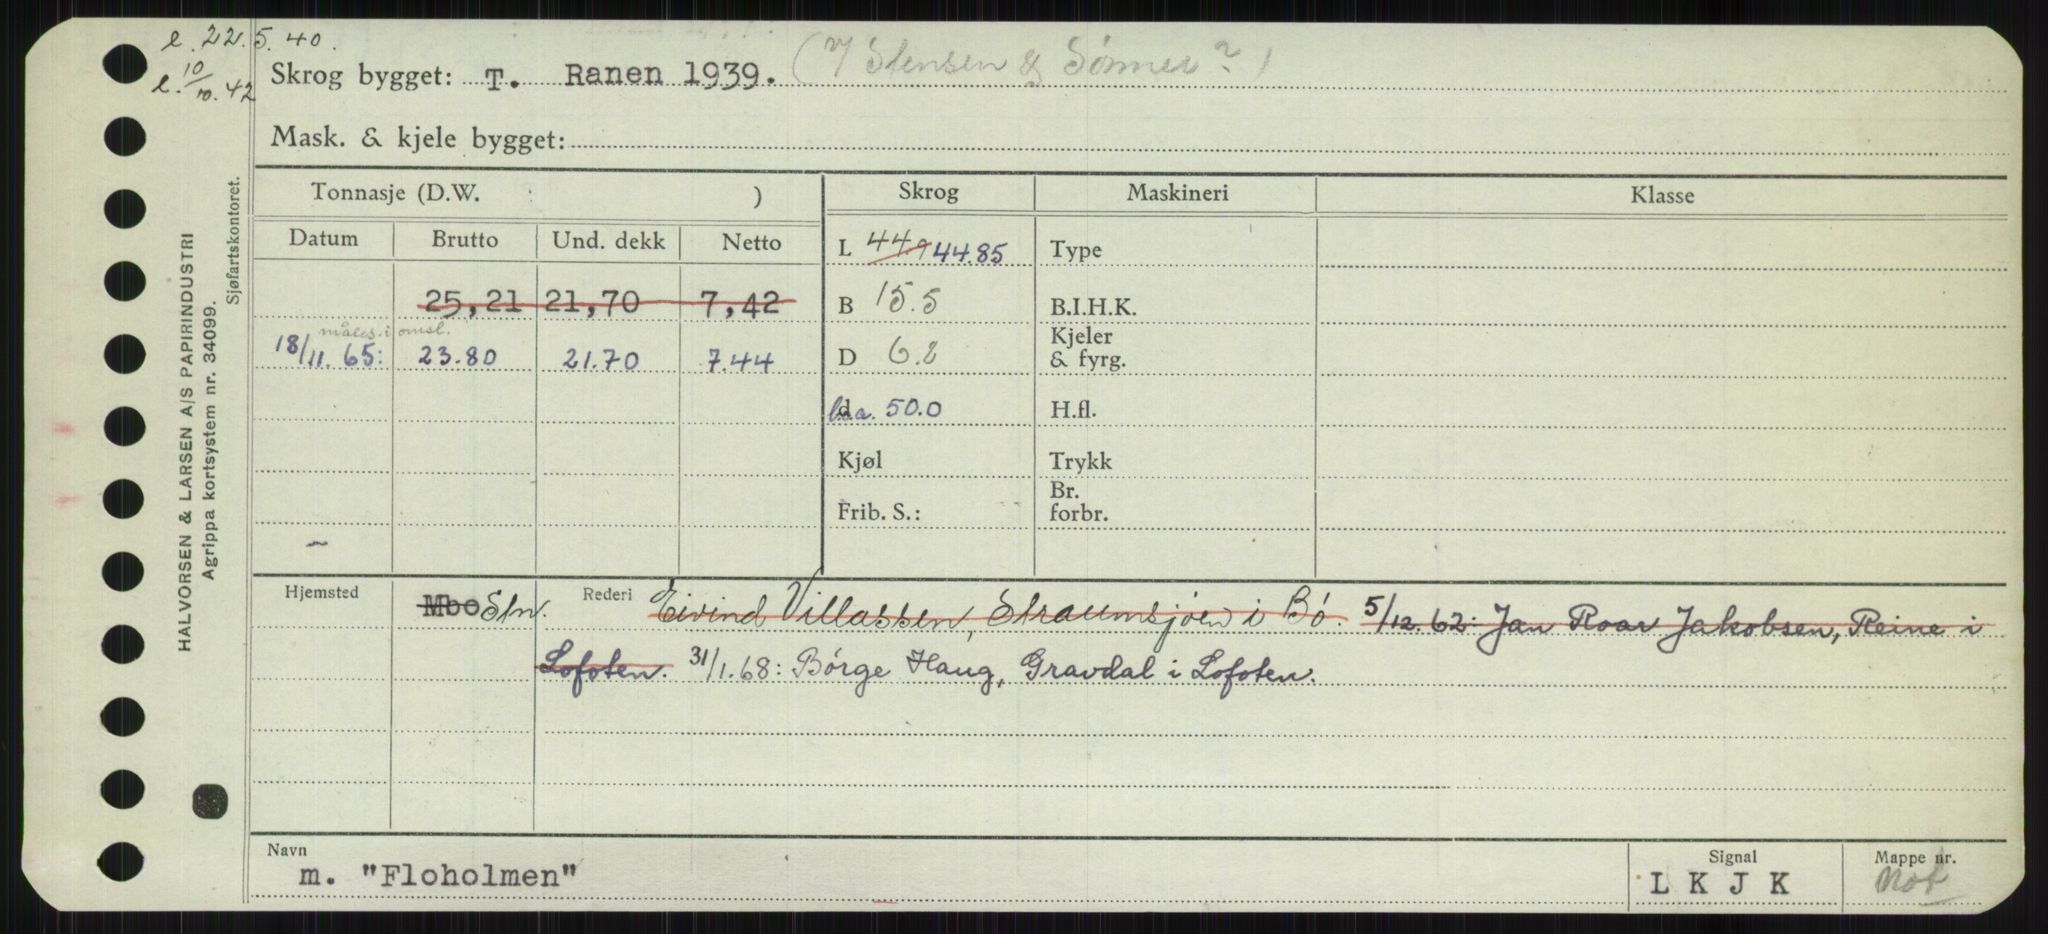 e. 22.5.40.
e. 10/10.42
Skrog bygget: T. Ranen 1939. (V/ Stensen & Sønner?)
Mask. & kjele bygget:
HALVORSEN & LARSEN A/S PAPIRINDUSTRI
Agrippa kortsystem nr. 34099.
Sjøfartskontoret.
Tonnasje (D.W. ) Skrog Maskineri Klasse
Datum Brutto Und. dekk Netto
L 44.9 44.85 Type
25,21 21,70 7,42 B 15.5 B.I.H.K.
måles i omsl.
18/11.65: 23.80 21.70 7.44 D 6.2 Kjeler
& fyrg.
d loa. 50.0 H.fl.
Kjøl Trykk
Frib. S.: Br.
forbr.
Hjemsted Mbo Stn. Rederi Eivind Villassen, Straumsjøen i Bø. 5/12.62: Jan Roar Jakobsen, Reine i
Lofoten. 31/1.68: Børge Haug, Gravdal i Lofoten.
Navn Signal Mappe nr.
m. "Floholmen" L K J K Not